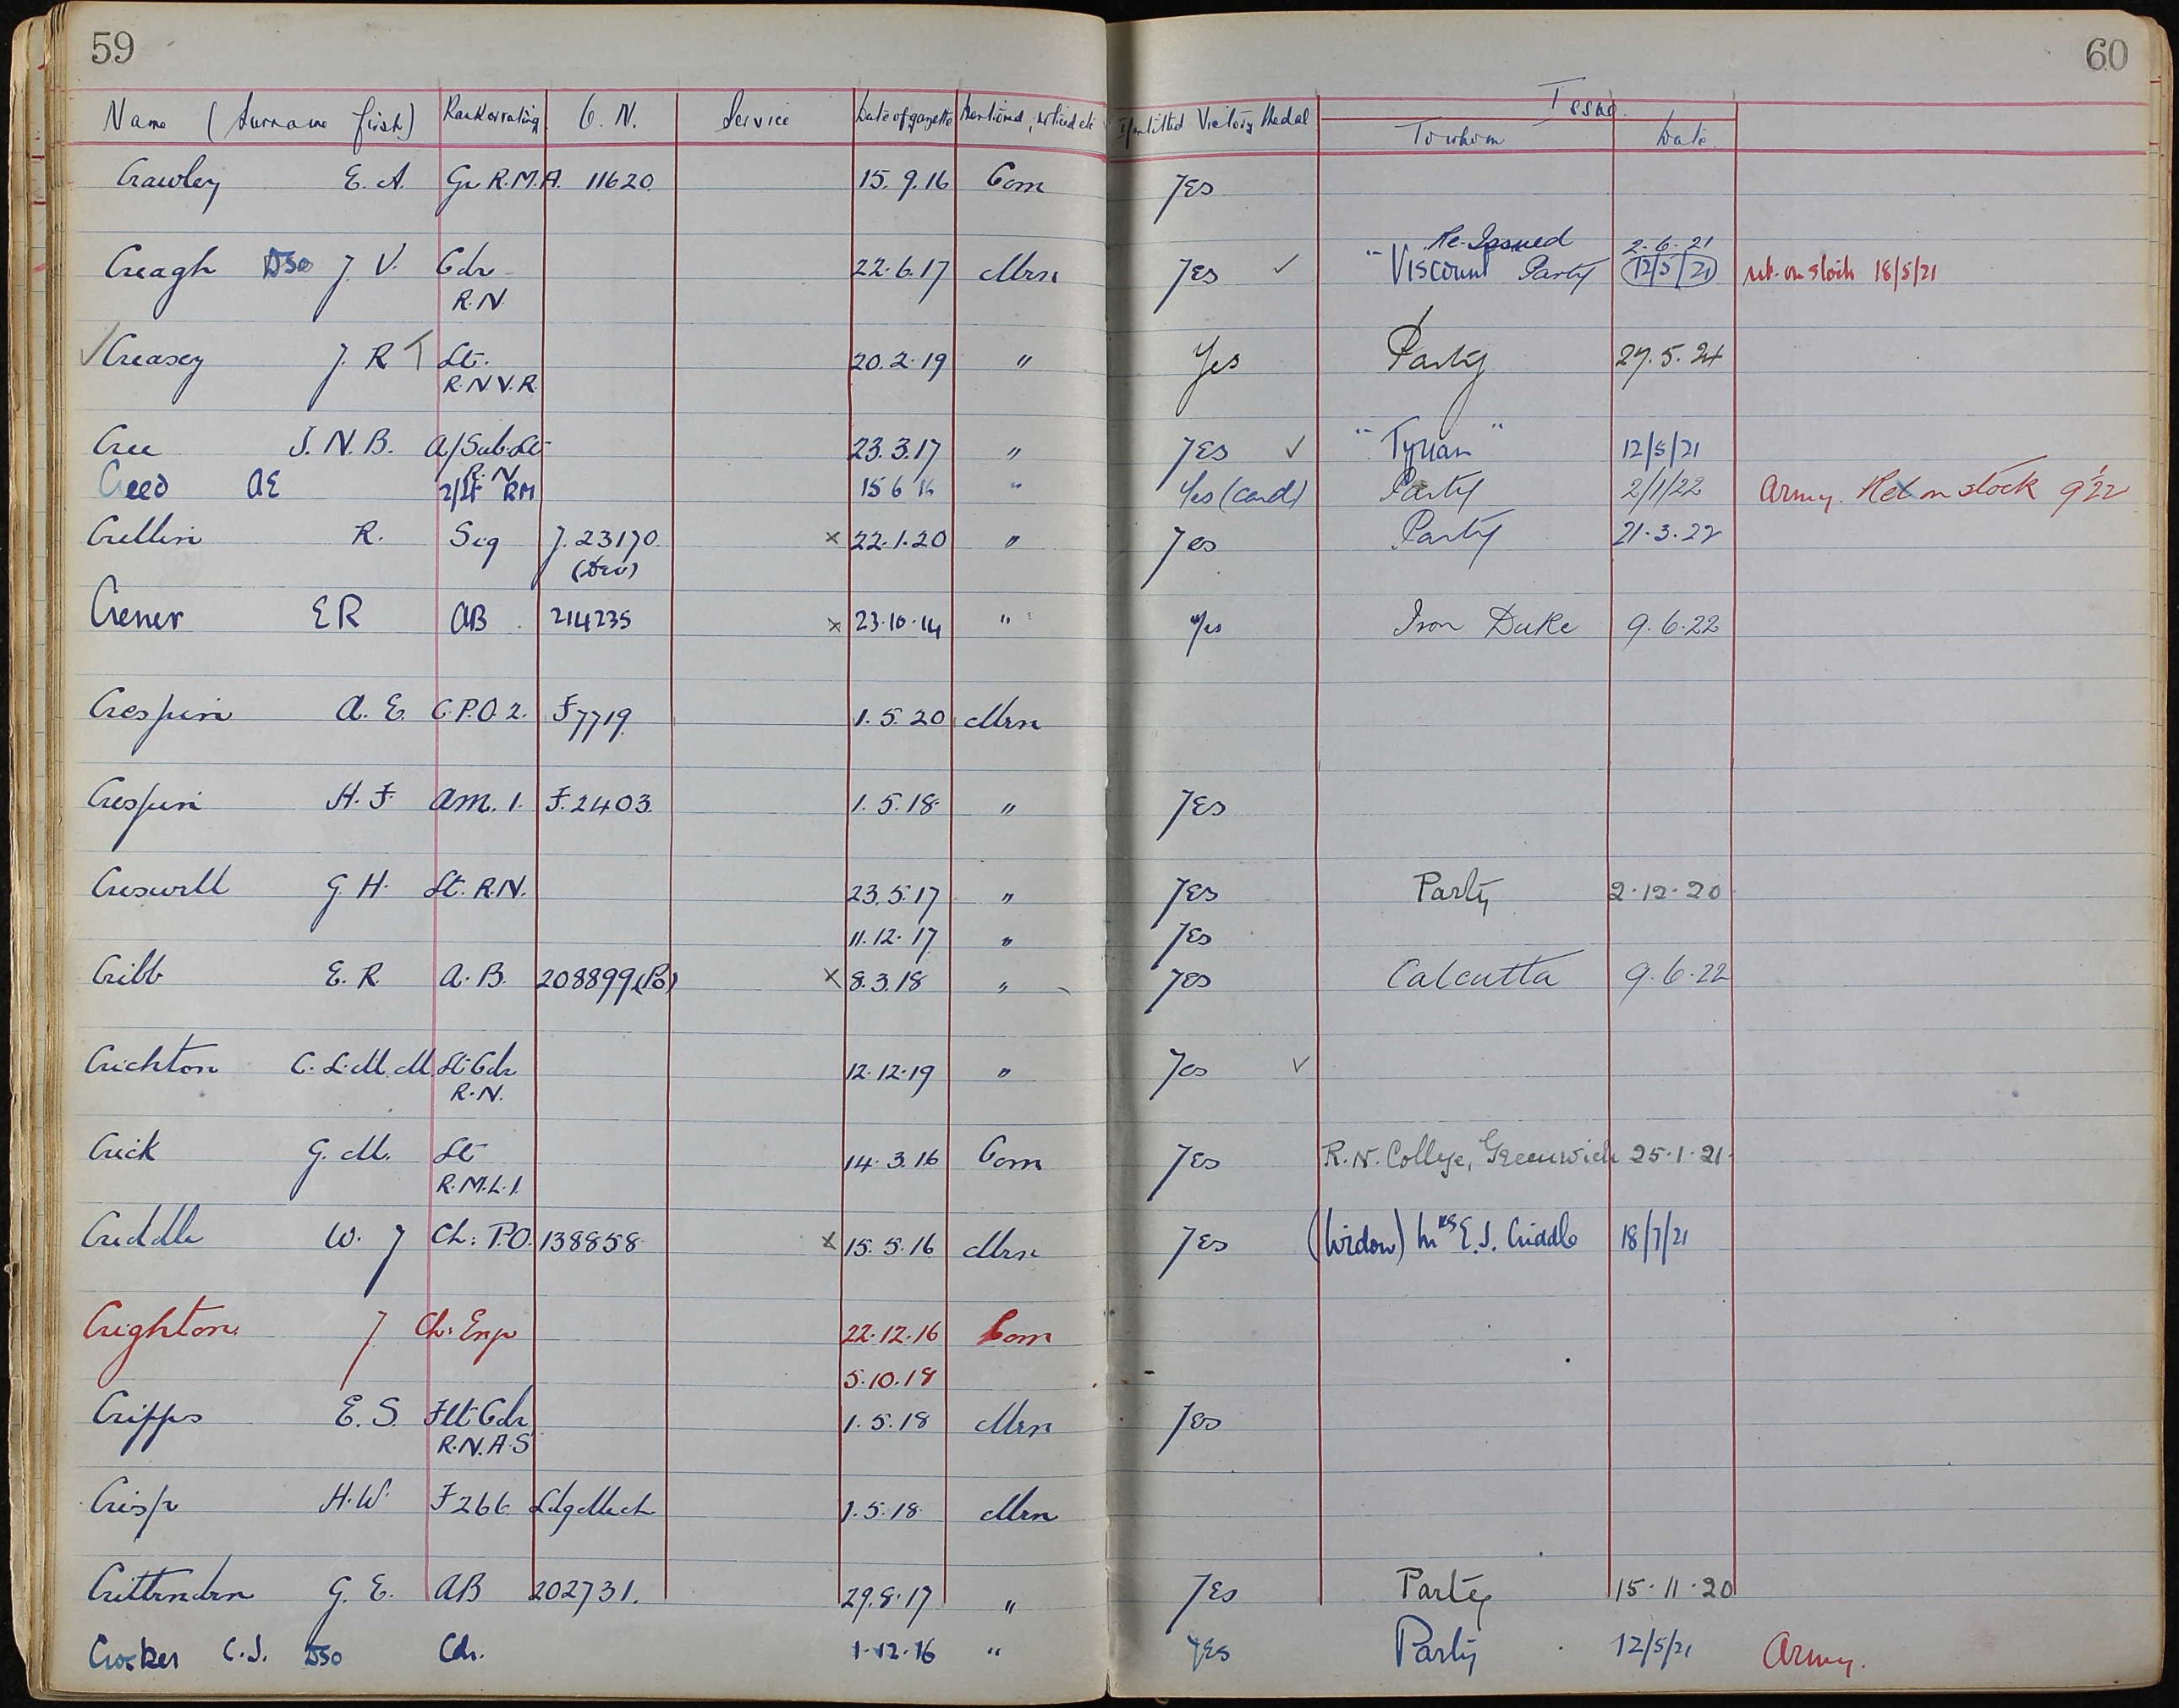 59
60
Name (Surname first) Rank or rating O.N. Service Date of gazette Mentioned, noticed etc If entitled Victory Medal Issue
To whom Date
Crawley E. A. Gr R.M.A. 11620 15.9.16 Com Yes
Re-Issued 2.6.21
Creagh DSO J V. Cdr 22.6.17 Men Yes ✓ "Viscount Party 12/5/21 ret. on stock 18/5/21
R.N.
✓ Creasey J. R T Lt. 20.2.19 " Yes Party 27.5.24
R.N.V.R.
Cree J. N. B. A/Sub-Lt 23.3.17 " Yes ✓ "Tyrian" 12/5/21
R.N
Creed AE 2/Lt RM 15 6 16 " Yes (card) Party 2/1/22 Army. Ret on stock 9/1/22
Crellin R. Sig J. 23170 × 22.1.20 " Yes Party 21.3.22
(Dev)
Crener E R AB 214235 × 23.10.14 " Yes Iron Duke 9.6.22
Crespin A. E. C.P.O. 2. F7719 1.5.20 Men
Crespin H. F. Am. 1. F.2403 1.5.18 " Yes
Creswell G. H. Lt. R.N. 23.5.17 " Yes Party 2.12.20
11.12.17 " Yes
Cribb E. R. A.B. 208899 (Po) × 8.3.18 " Yes Calcutta 9.6.22
Crichton C. L. M. M. Lt Cdr 12.12.19 " Yes ✓
R.N.
Crick G. M. Lt 14.3.16 Com Yes R.N. College, Greenwich 25.1.21
R.M.L.I.
Criddle W. J Ch: P.O. 138858 × 15.5.16 Men Yes (Widow) Mrs E. J. Criddle 18/7/21
Crighton J Ch: Engr 22.12.16 Com
5.10.18
Cripps E. S. Flt Cdr 1.5.18 Men Yes
R.N.A.S
Crisp H. W. F266 Ldg Mech 1.5.18 Men
Crittenden G. E. AB 202731. 29.8.17 " Yes Party 15.11.20
Crocker C. J. DSO Cdr. 1.12.16 " Yes Party 12/5/21 Army.